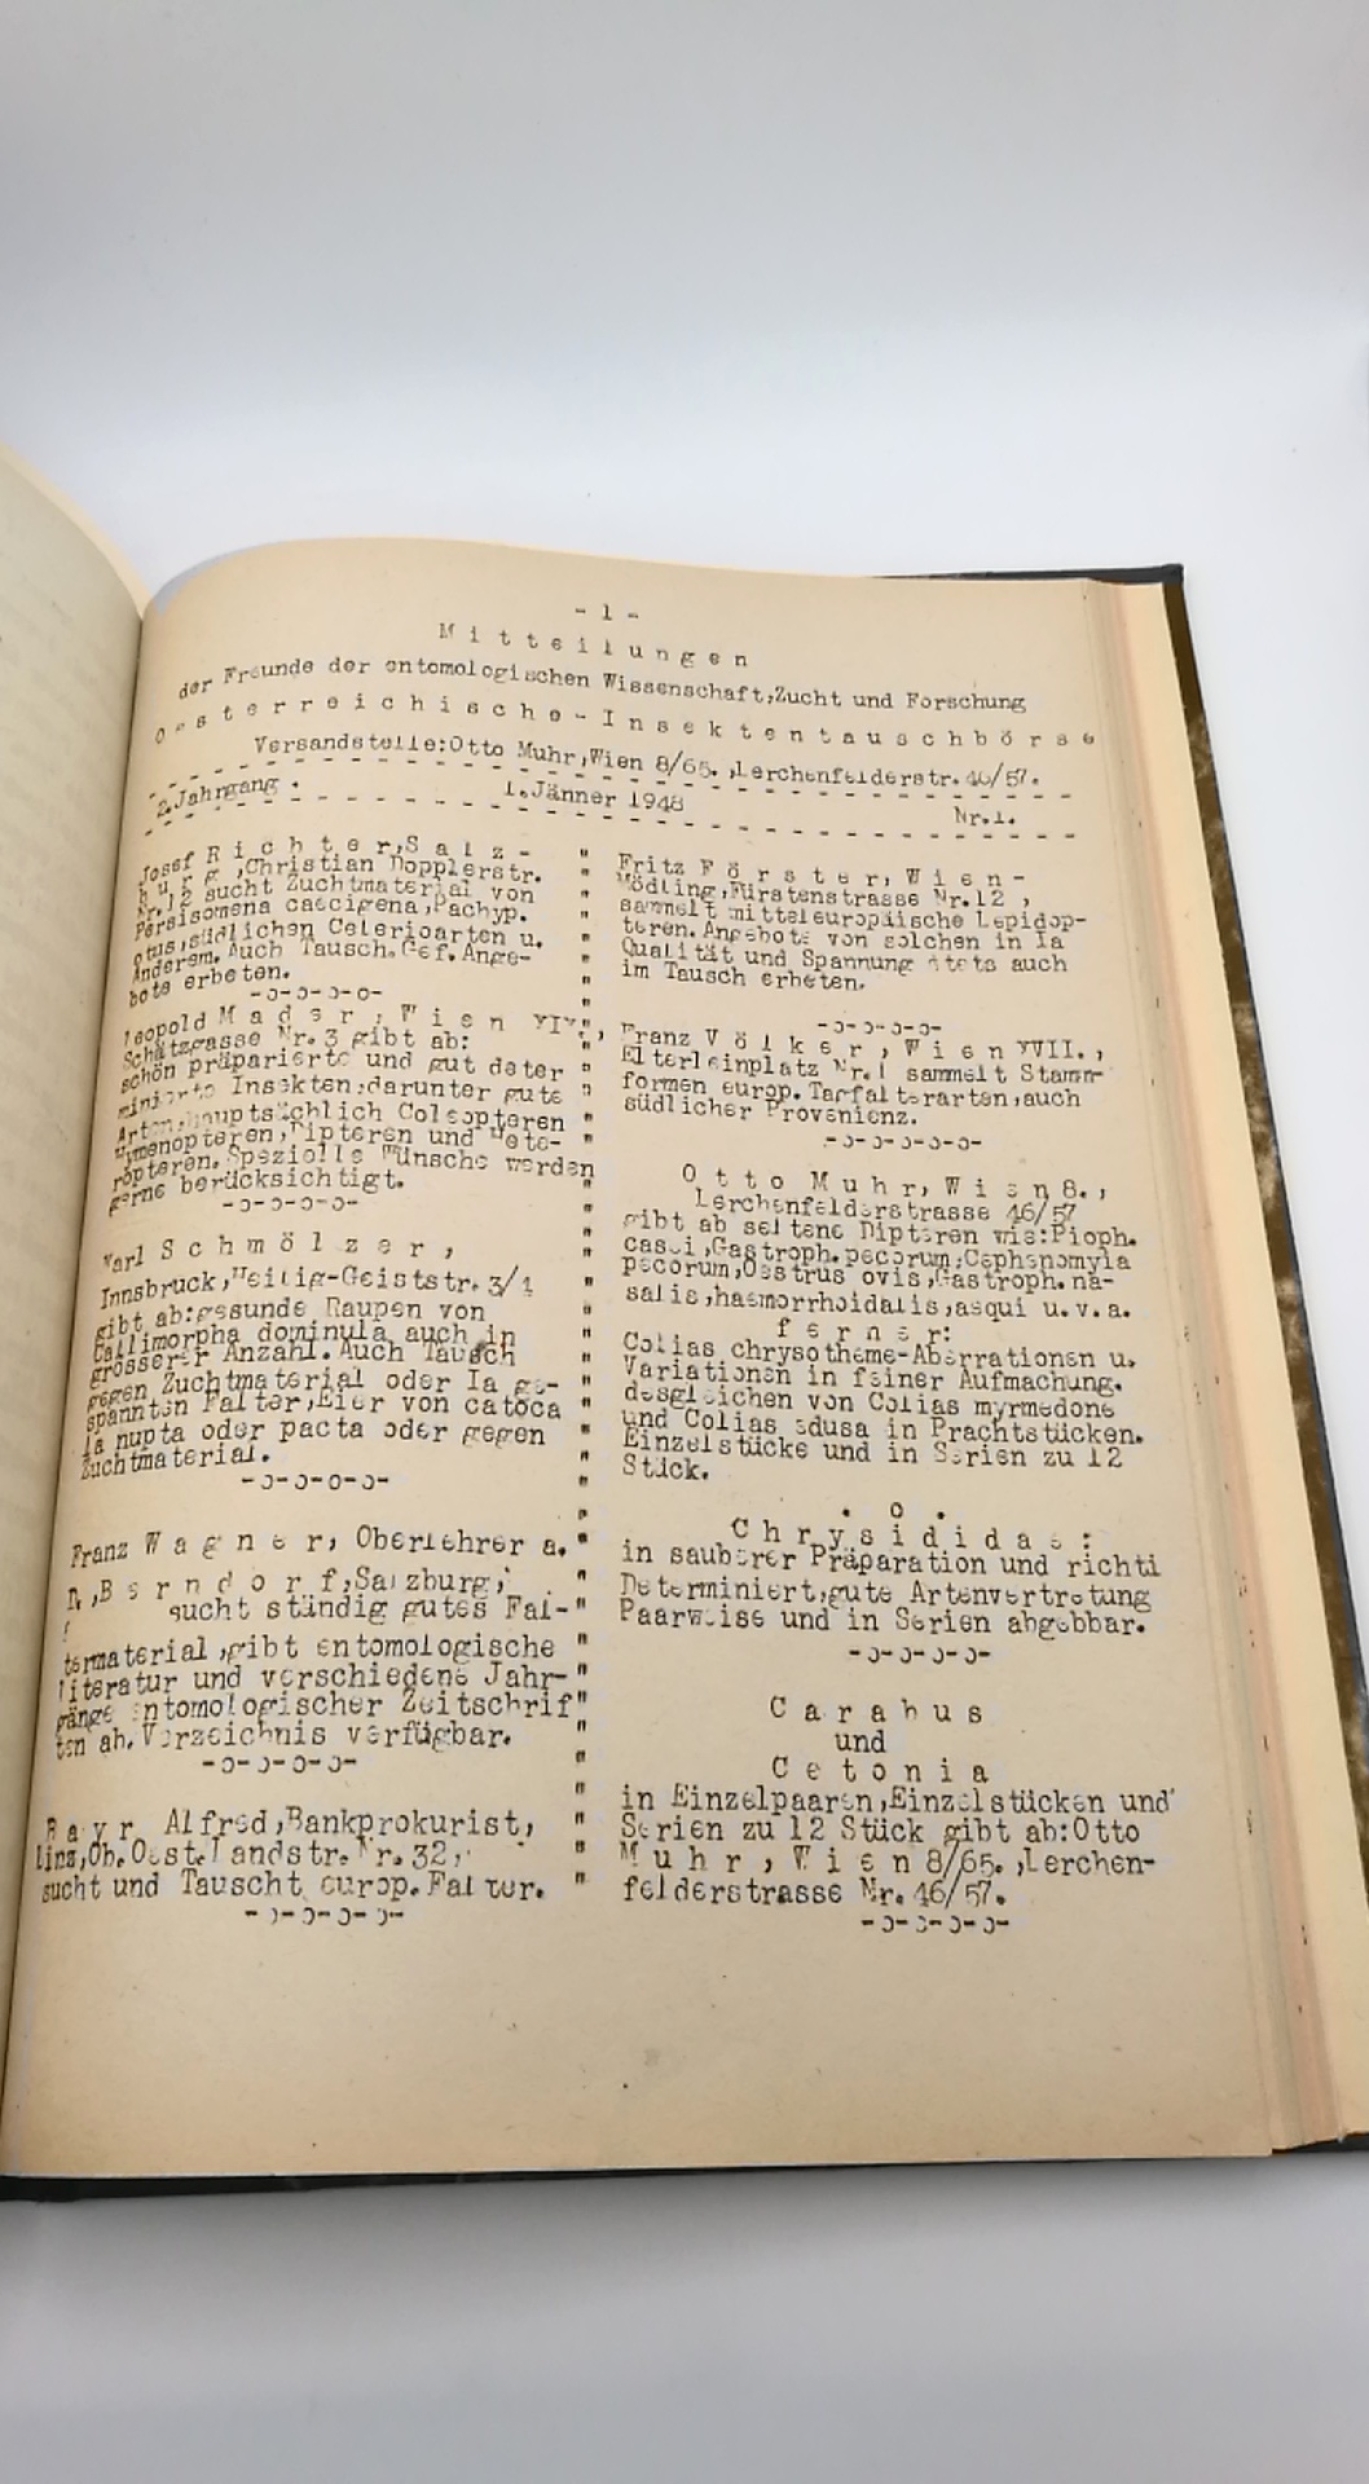 - 1 -
M i t t e i l u n g e n
der Freunde der entomologischen Wissenschaft,Zucht und Forschung
O e s t e r r e i c h i s c h e - I n s e k t e n t a u s c h b ö r s e
Versandstelle:Otto Muhr,Wien 8/65.,Lerchenfelderstr.46/57.
2.Jahrgang. 1.Jänner 1948 Nr.1.
Josef R i c h t e r,S a l z -
b u r g ,Christian Dopplerstr.
Nr.12 sucht Zuchtmaterial von
Persisomena caecigena,Pachyp.
otus,südlichen Celerioarten u.
Anderem. Auch Tausch.Gef.Ange-
bote erbeten.
-o-o-o-o-
Leopold M a d e r , W i e n XIV.,
Schätzgasse Nr. 3 gibt ab:
schön präparierte und gut deter
minierte Insekten,darunter gute
Arten,hauptsächlich Coleopteren
Hymenopteren,Dipteren und Hete-
ropteren.Spezielle Wünsche werden
gerne berücksichtigt.
-o-o-o-o-
Karl S c h m ö l z e r ,
Innsbruck,Heilig-Geiststr. 3/1
gibt ab:gesunde Raupen von
Callimorpha dominula auch in
grösserer Anzahl.Auch Tausch
gegen Zuchtmaterial oder Ia ge-
spannten Falter,Eier von catoca
la nupta oder pacta oder gegen
Zuchtmaterial.
-o-o-o-o-
Franz W a g n e r, Oberlehrer a.
D.,B e r n d o r f,Salzburg,
sucht ständig gutes Fal-
termaterial,gibt entomologische
literatur und verschiedene Jahr-
gänge entomologischer Zeitschrif
ten ab.Verzeichnis verfügbar.
-o-o-o-o-
B a y r Alfred,Bankprokurist,
Linz,Ob.Oest.Landstr.Nr.32,
sucht und Tauscht europ.Falter.
-o-o-o-o-
Fritz F ö r s t e r, W i e n -
Mödling,Fürstenstrasse Nr.12 ,
sammelt mitteleuropäische Lepidop-
teren.Angebote von solchen in Ia
Qualität und Spannung stets auch
im Tausch erbeten.
-o-o-o-o-
Franz V ö l k e r , W i e n XVII.,
Elterleinplatz Nr.1 sammelt Stamm-
formen europ. Tagfalterarten,auch
südlicher Provenienz.
-o-o-o-o-o-
O t t o M u h r, W i e n 8.,
Lerchenfelderstrasse 46/57
gibt ab seltene Dipteren wie:Pioph.
casei,Gastroph.pecorum,Cephenomyla
pecorum,Oestrus ovis,Gastroph.na-
salis,haemorrhoidalis,asqui u.v.a.
f e r n e r:
Colias chrysotheme-Aberrationen u.
Variationen in feiner Aufmachung.
desgleichen von Colias myrmedone
und Colias edusa in Prachtstücken.
Einzelstücke und in Serien zu 12
Stück.
. o .
C h r y s i d i d a e :
in sauberer Präparation und richti
Determiniert,gute Artenvertretung
Paarweise und in Serien abgebbar.
-o-o-o-o-
C a r a b u s
und
C e t o n i a
in Einzelpaaren,Einzelstücken und
Serien zu 12 Stück gibt ab:Otto
M u h r , W i e n 8/65.,Lerchen-
felderstrasse Nr. 46/57.
-o-o-o-o-